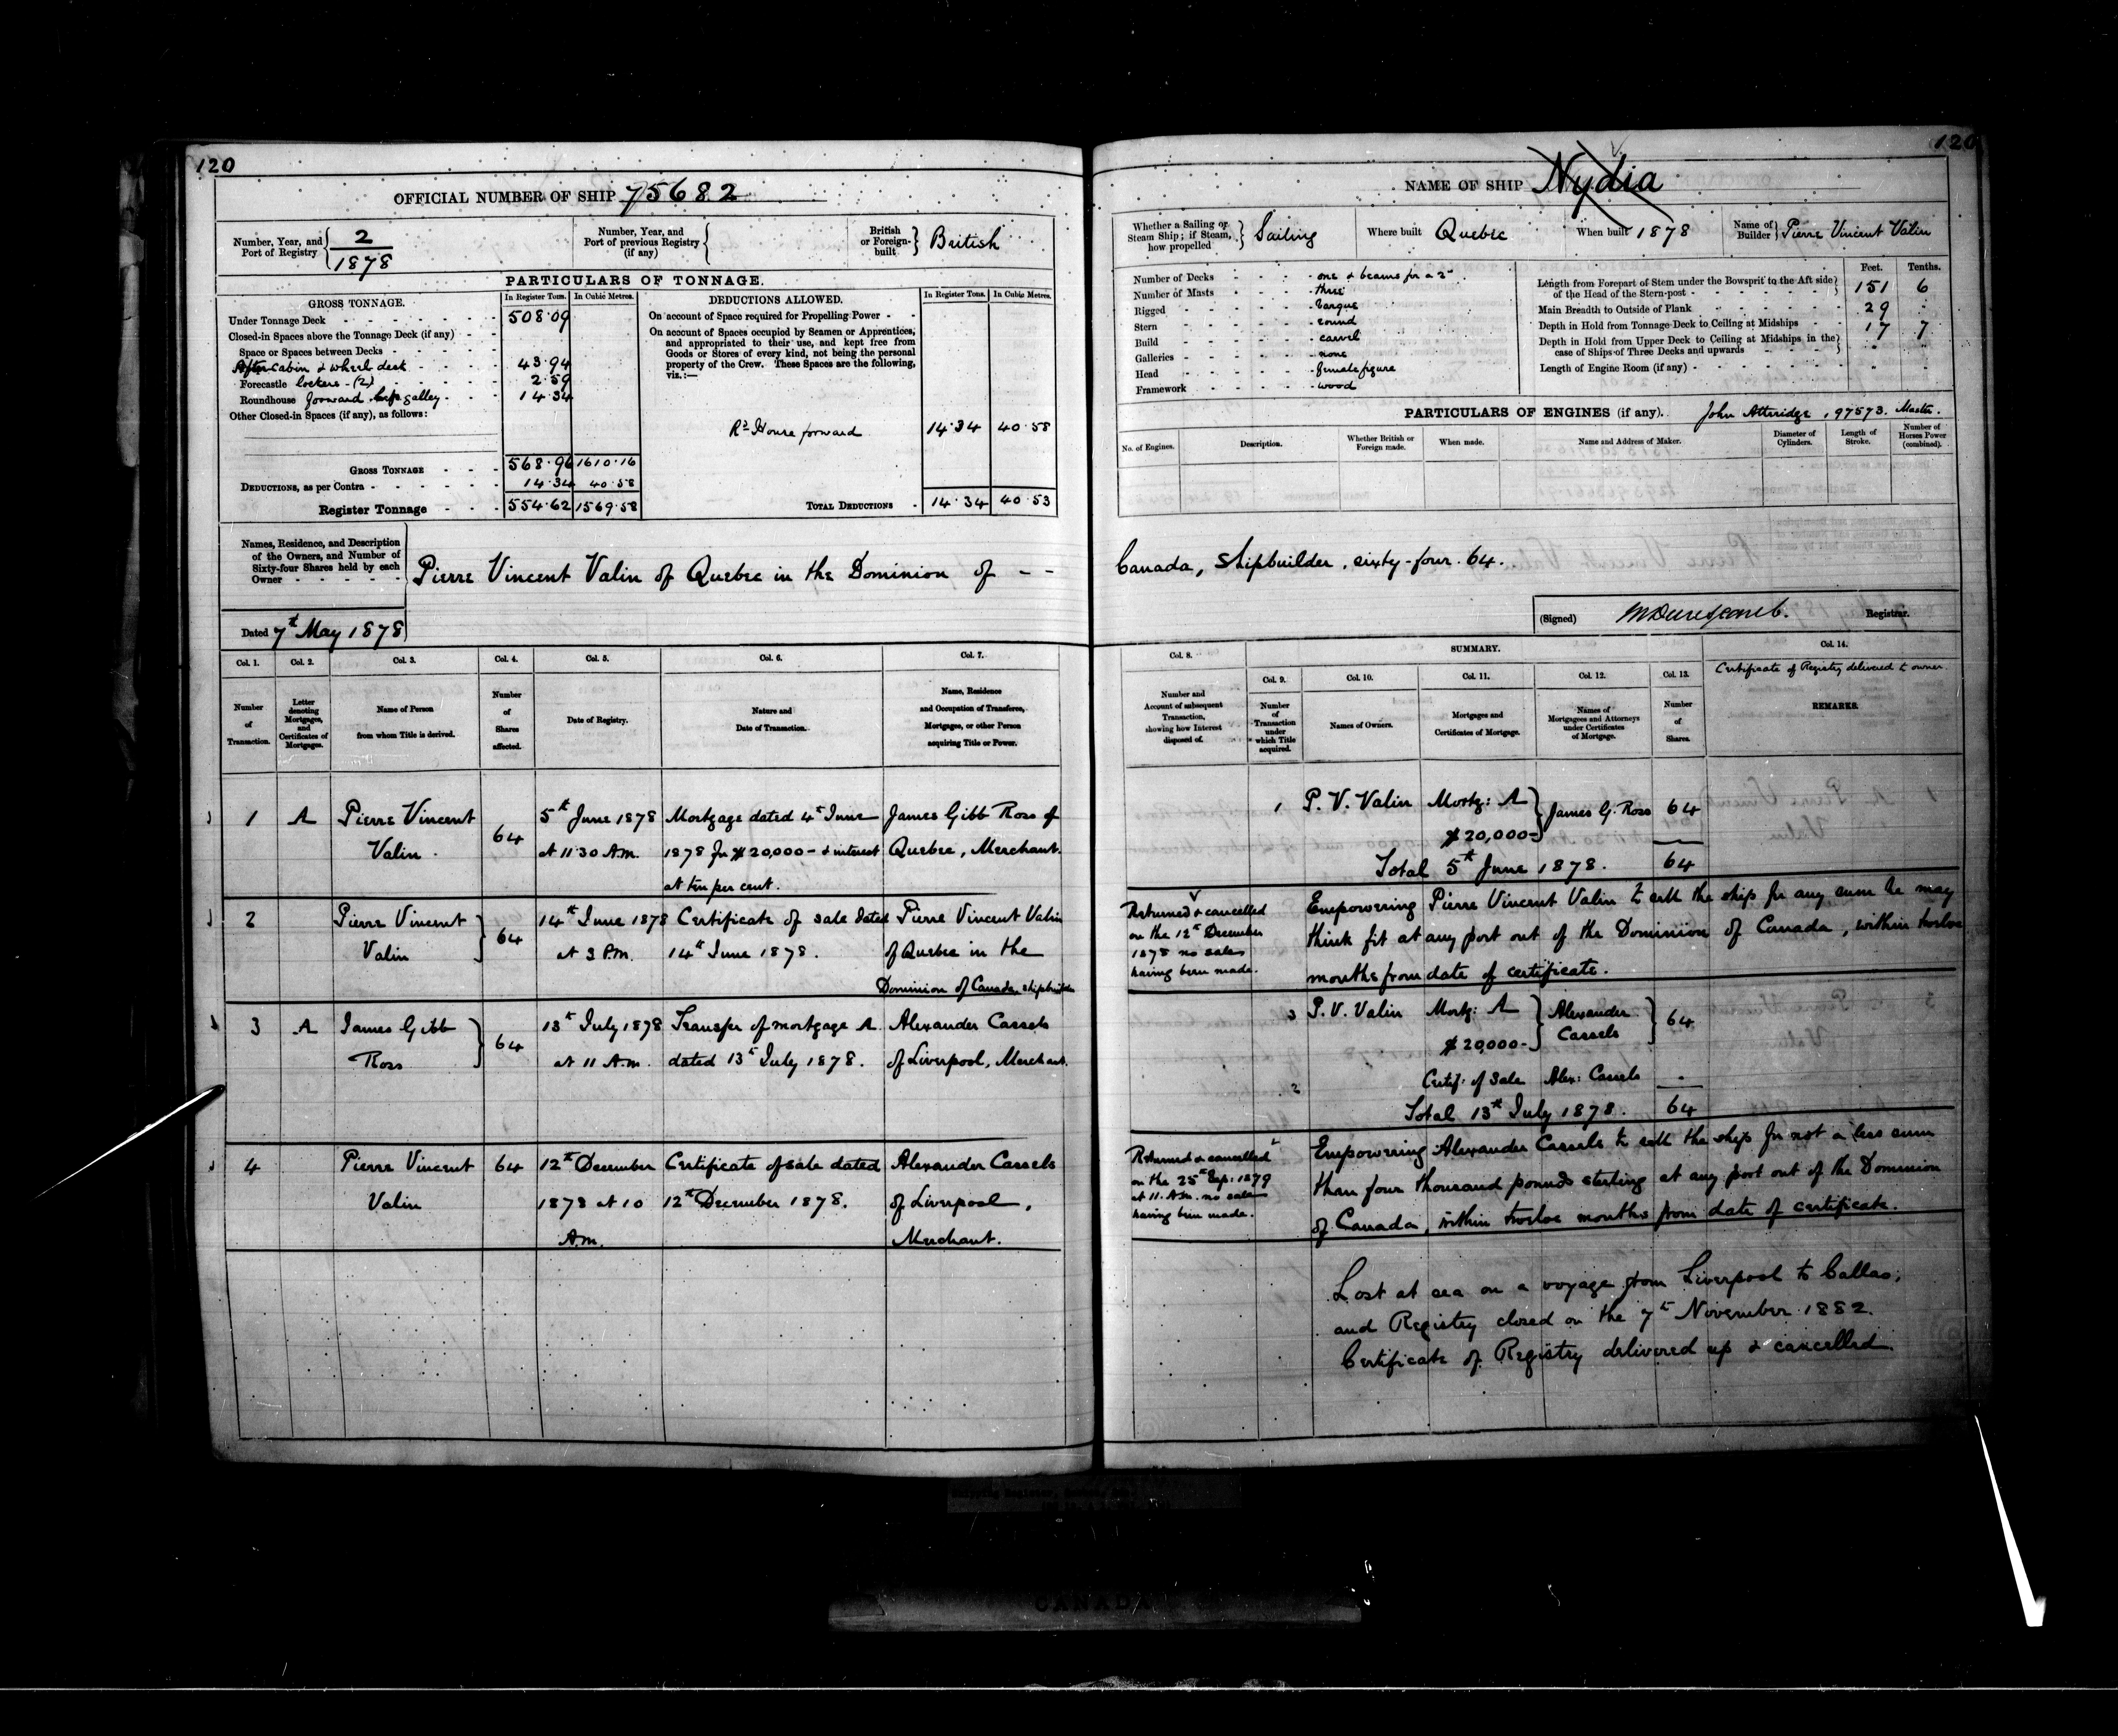 120
OFFICIAL NUMBER OF SHIP 75682
Number, Year, and Port of Registry { 2 / 1878
Number, Year, and Port of previous Registry (if any) {
British or Foreign-built } British
PARTICULARS OF TONNAGE.
GROSS TONNAGE. In Register Tons. In Cubic Metres.
Under Tonnage Deck - 508.09
Closed-in Spaces above the Tonnage Deck (if any) -
Space or Spaces between Decks -
After Cabin & wheel desk 43.94
Forecastle lockers - (2) 2.59
Roundhouse forward galley 14.34
Other Closed-in Spaces (if any), as follows:
GROSS TONNAGE - 568.96 1610.16
DEDUCTIONS, as per Contra - 14.34 40.58
Register Tonnage - 554.62 1569.58
DEDUCTIONS ALLOWED. In Register Tons. In Cubic Metres.
On account of Space required for Propelling Power -
On account of Spaces occupied by Seamen or Apprentices,
and appropriated to their use, and kept free from
Goods or Stores of every kind, not being the personal
property of the Crew. These Spaces are the following,
viz.:—
Rd House forward 14.34 40.58
TOTAL DEDUCTIONS - 14.34 40.53
Names, Residence, and Description
of the Owners, and Number of
Sixty-four Shares held by each
Owner -
Pierre Vincent Valin of Quebec in the Dominion of - -
Dated 7th May 1878
Col. 1. Col. 2. Col. 3. Col. 4. Col. 5. Col. 6. Col. 7.
Number of Transaction.
Letter denoting Mortgages, and Certificates of Mortgages.
Name of Person from whom Title is derived.
Number of Shares affected.
Date of Registry.
Nature and Date of Transaction.
Name, Residence and Occupation of Transferee, Mortgagee, or other Person acquiring Title or Power.
1 A Pierre Vincent 64 5th June 1878 Mortgage dated 4th June James Gibb Ross of
Valin. at 11.30 A.M. 1878 for $20,000- & interest Quebec, Merchant.
at ten per cent.
2 Pierre Vincent } 64 14th June 1878 Certificate of sale dated Pierre Vincent Valin
Valin at 3 P.M. 14th June 1878. of Quebec in the
Dominion of Canada, shipbuilder
3 A James Gibb } 64 13th July 1878 Transfer of mortgage A. Alexander Cassels
Ross at 11 A.M. dated 13th July 1878. of Liverpool, Merchant.
4 Pierre Vincent 64 12th December Certificate of sale dated Alexander Cassels
Valin 1878 at 10 12th December 1878. of Liverpool,
A.M. Merchant.
120
NAME OF SHIP Nydia
Whether a Sailing or Steam Ship; if Steam, how propelled } Sailing
Where built Quebec
When built 1878
Name of Builder } Pierre Vincent Valin
Number of Decks - one & beams for a 2d
Number of Masts - three
Rigged - barque
Stern - round
Build - carvel
Galleries - none
Head - female figure
Framework - wood
Feet. Tenths.
Length from Forepart of Stem under the Bowsprit to the Aft side
of the Head of the Stern-post - 151 6
Main Breadth to Outside of Plank 29
Depth in Hold from Tonnage Deck to Ceiling at Midships - 17 7
Depth in Hold from Upper Deck to Ceiling at Midships in the
case of Ships of Three Decks and upwards -
Length of Engine Room (if any) -
PARTICULARS OF ENGINES (if any). John Attridge, 97573. Master.
No. of Engines.
Description.
Whether British or Foreign made.
When made.
Name and Address of Maker.
Diameter of Cylinders.
Length of Stroke.
Number of Horses Power (combined).
Canada, Shipbuilder, sixty-four. 64.
(Signed) Registrar.
SUMMARY.
Col. 8. Col. 9. Col. 10. Col. 11. Col. 12. Col. 13. Col. 14.
Certificate of Registry delivered to owner.
Number and Account of subsequent Transaction, showing how Interest disposed of.
Number of Transaction under which Title acquired.
Names of Owners.
Mortgages and Certificates of Mortgage.
Names of Mortgagees and Attorneys under Certificates of Mortgage.
Number of Shares.
REMARKS.
1 P. V. Valin Mortg: A } James G. Ross 64
$20,000-
Total 5th June 1878. 64
Returned & cancelled
on the 12th December
1878 no sales
having been made.
Empowering Pierre Vincent Valin to sell the ship for any sum he may
think fit at any port out of the Dominion of Canada, within twelve
months from date of certificate.
3 P. V. Valin Mortg: A } Alexander } 64
$20,000- Cassels
2 Certif: of Sale Alex: Cassels -
Total 13th July 1878. 64
Returned & cancelled
on the 25th Sep: 1879
at 11. A.M. no sales
having been made.
Empowering Alexander Cassels to sell the ship for not a less sum
than four thousand pounds sterling at any port out of the Dominion
of Canada, within twelve months from date of certificate.
Lost at sea on a voyage from Liverpool to Callao,
and Registry closed on the 7th November 1882.
Certificate of Registry delivered up & cancelled.
CANADA